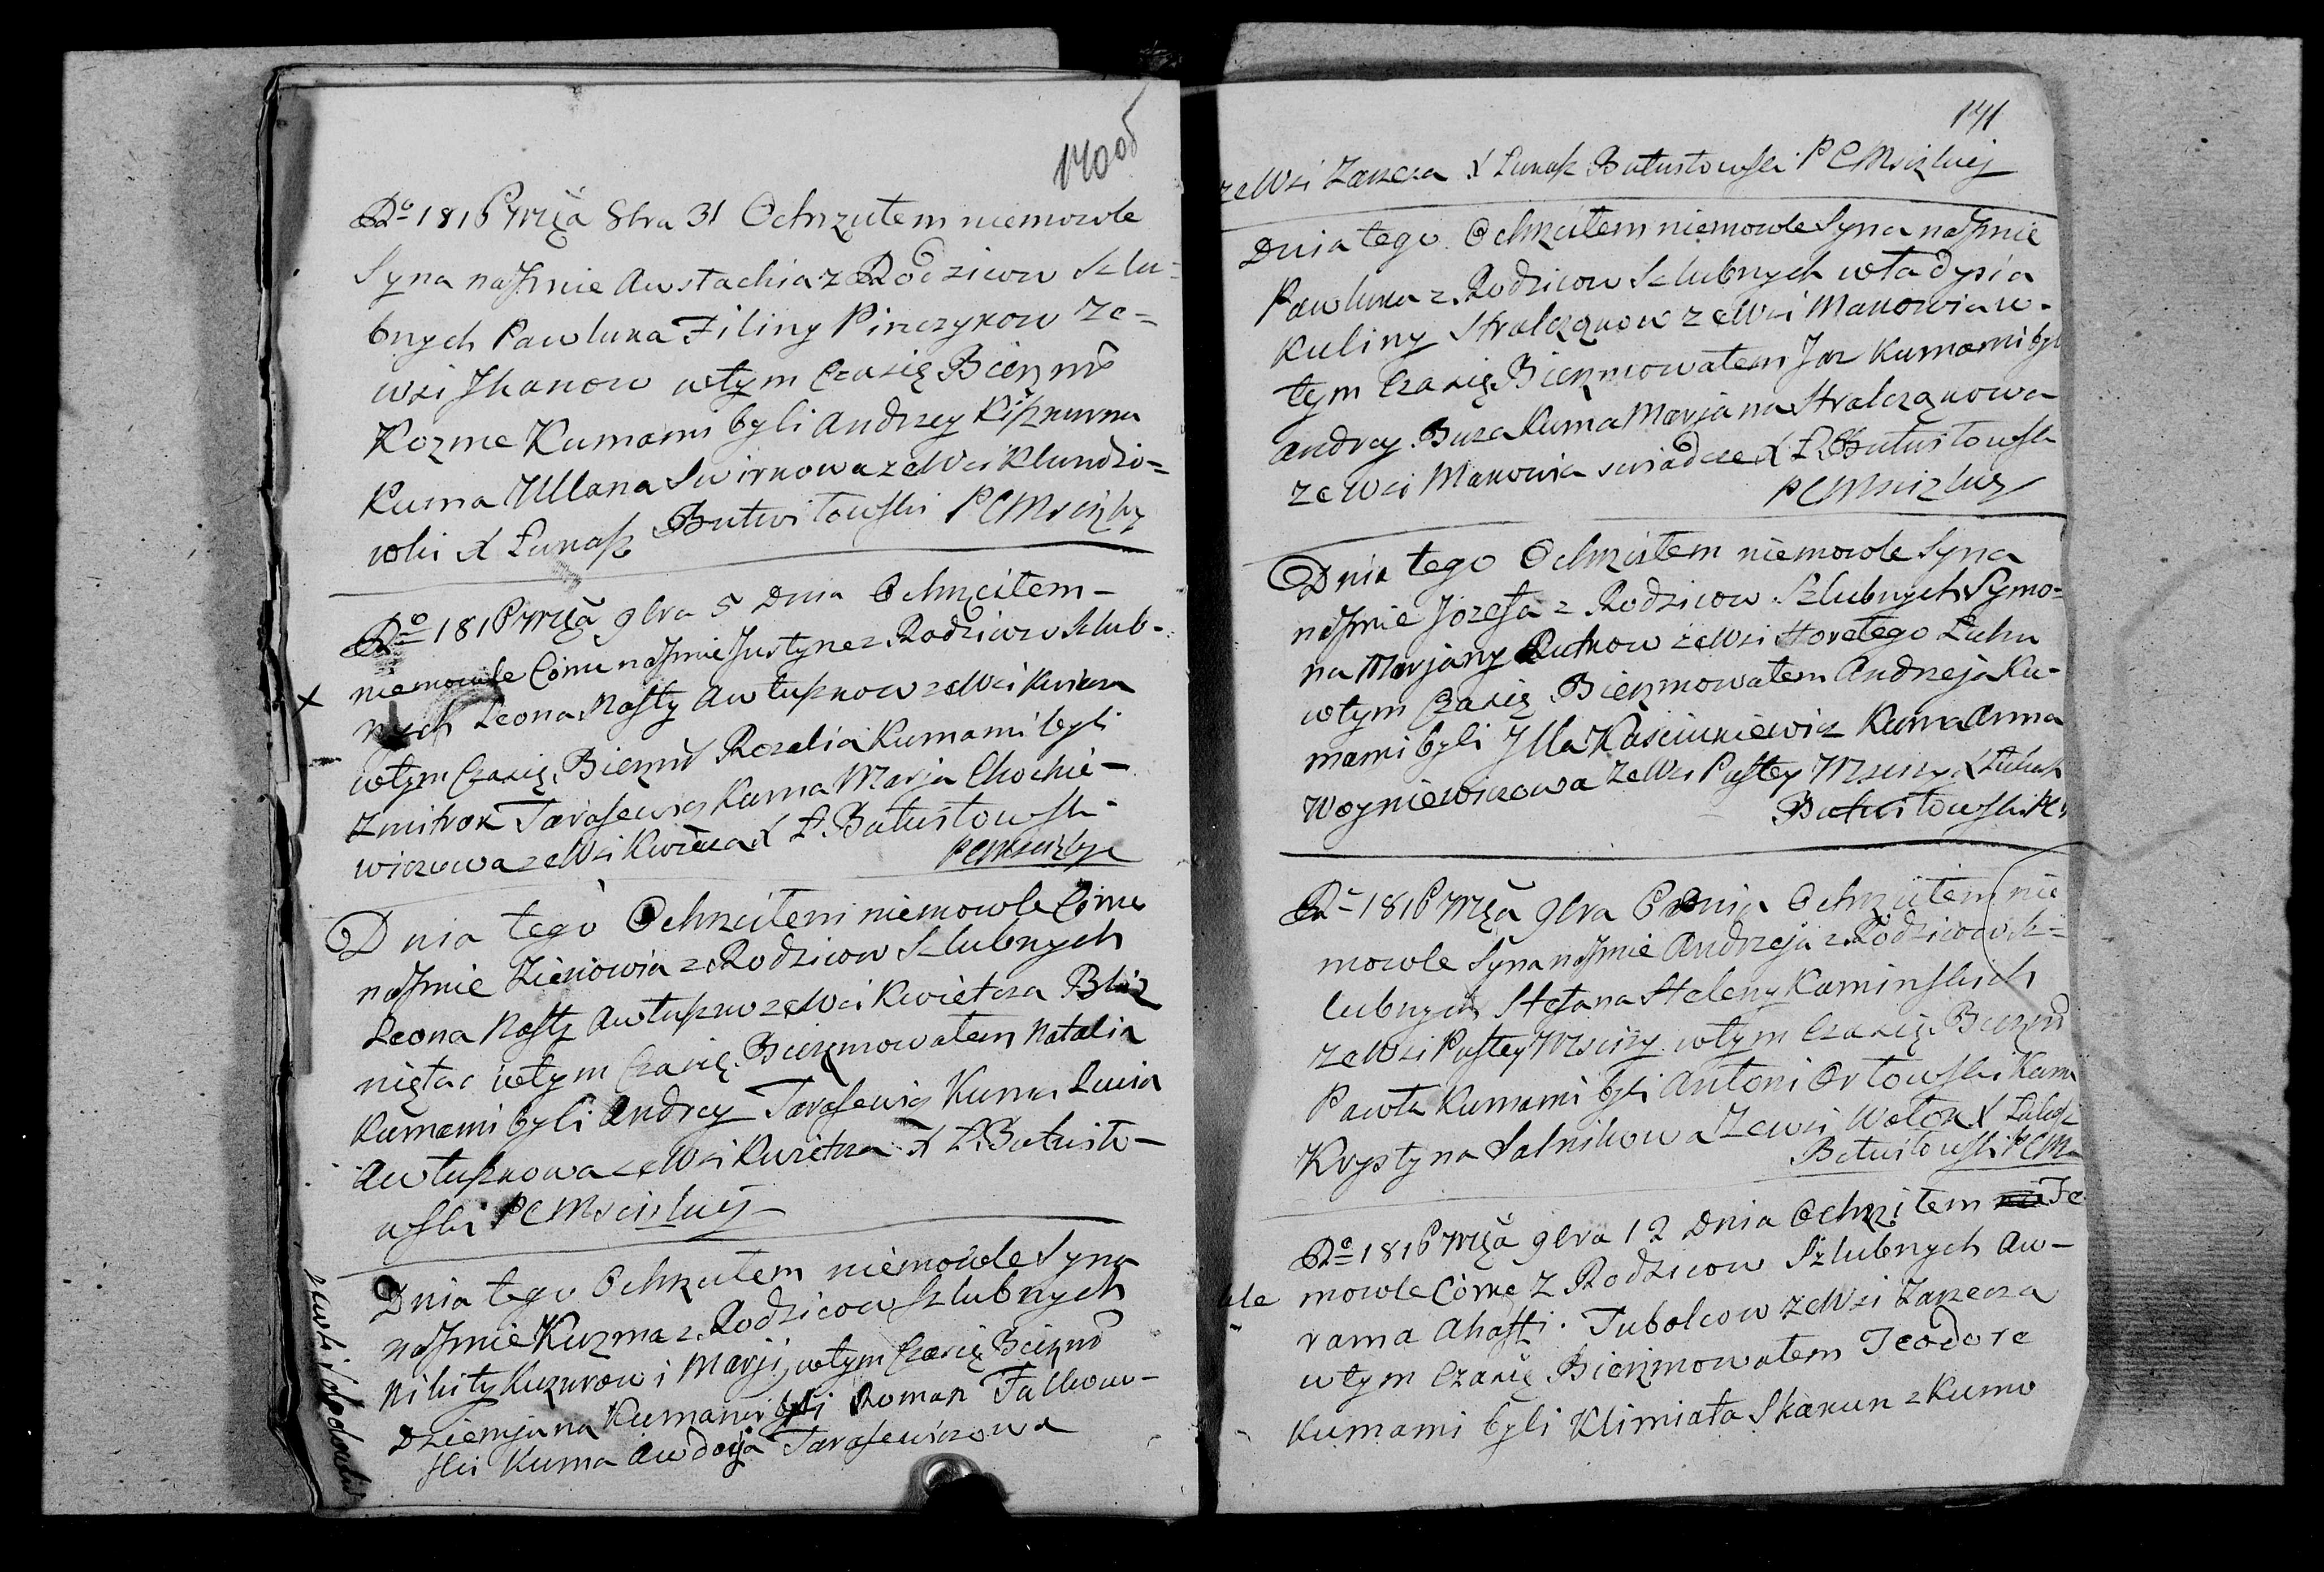 170об
Rº 1816 Mca 8bra 31 Ochrzciłem niemowle
Syna na Jmie Awstachia z Rodzicow Szlu=
bnych Pawluka Filiny Pinczykow ze=
wsi Jkanow wtym Czasię Bierzm
Kozme Kumami byli Andrzey
Kuma Ullana Swirkowa ze Wsi Klundzio=
wki X Łukasz Butwiłowski PCMscizky
Rº 1816 Mca 9bra 5 Dnia Ochrzciłem –
niemowle Córne na Jmie Justyne z Rodzicow Szlub-
nych Leona Nasty Awtuszkow ze Wsi
wtym Czasię Bierzm Rozalia Kumami byli
Zmitrok Tarasewicz Kuma Marja Chochie –
wiczowa ze Wsi Kwietcza X Ł. Butwiłowski
PCMscizky
Dnia tego Ochrzciłem niemowle Córne
na Jmie Zienowia z Rodzicow Szlubnych
Leona Nasty Awtuszkow ze Wsi Kwietcza Bliz
niętac wtym Czasię Bierzmowałem Natalia
Kumami byli Andrey Tarasewicz Kuma
Awtuszkowa ze Wsi Kwietcza X Ł. Butwiło –
wski PCMscizkiey
Dnia tego Ochrzciłem niemowle Syna
na Jmie Kuzma z Rodzicow Szlubnych
Nikity Kuzurow i Marji, wtym Czasię Bierzm
Dziemjana Kumami byli Roman Falkow –
ski Kuma Awdocja Tarasewiczowa
171
ze Wsi Zarzecza X Łukasz Butwiłowski PCMscizkiej
Dnia tego Ochrzciłem niemowle Syna na Jmie
Pawluka z Rodzicow Szlubnych Władysia
Kuliny Stralcząkow ze Wsi Makowia w-
tym Czasię Bierzmowałem Jan Kumami byl
Andrey Buza Kuma Marjana Stralcząkowa
ze Wsi Makowia X Ł Butwiłowski
PCMscizkiey
Dnia tego Ochrzciłem niemowle Syna
na Jmie Jozefa z Rodzicow Szlubnych Symo=
na Marjany Rutkow ze Wsi Horełego Łuhu
wtym Czasię Bierzmowałem Andrzeja Ku-
mami byli Jlla Kasciukiewicz Kuma Anna
Woyniewiczowa ze Wsi Pustey Mscizy X Łukasz
Butwiłowski PC
Rº 1816 Mca 9bra 6 Dnia Ochrzciłem nie
mowle Syna na Jmie Andrzeja z Rodzicow Sz=
lubnych Stefana Heleny Kaminskich
ze Wsi Pustey Mscizy wtym Czasię Bierzm
Pawła Kumami byli Antoni Orłowski Kum
Krystyna Salnikowa ze Wsi Wołok X Łukasz
Butwiłowski PCM
Rº 1816 Mca 9bra 12 Dnia Ochrzciłem nie
mowle Córne z Rodzicow Szlubnych Aw –
rama Ahafji Tubolcow ze Wsi Zarzecza
wtym Czasię Bierzmowałem Teodore
Kumami byli Klimiata Skakun z Kumo